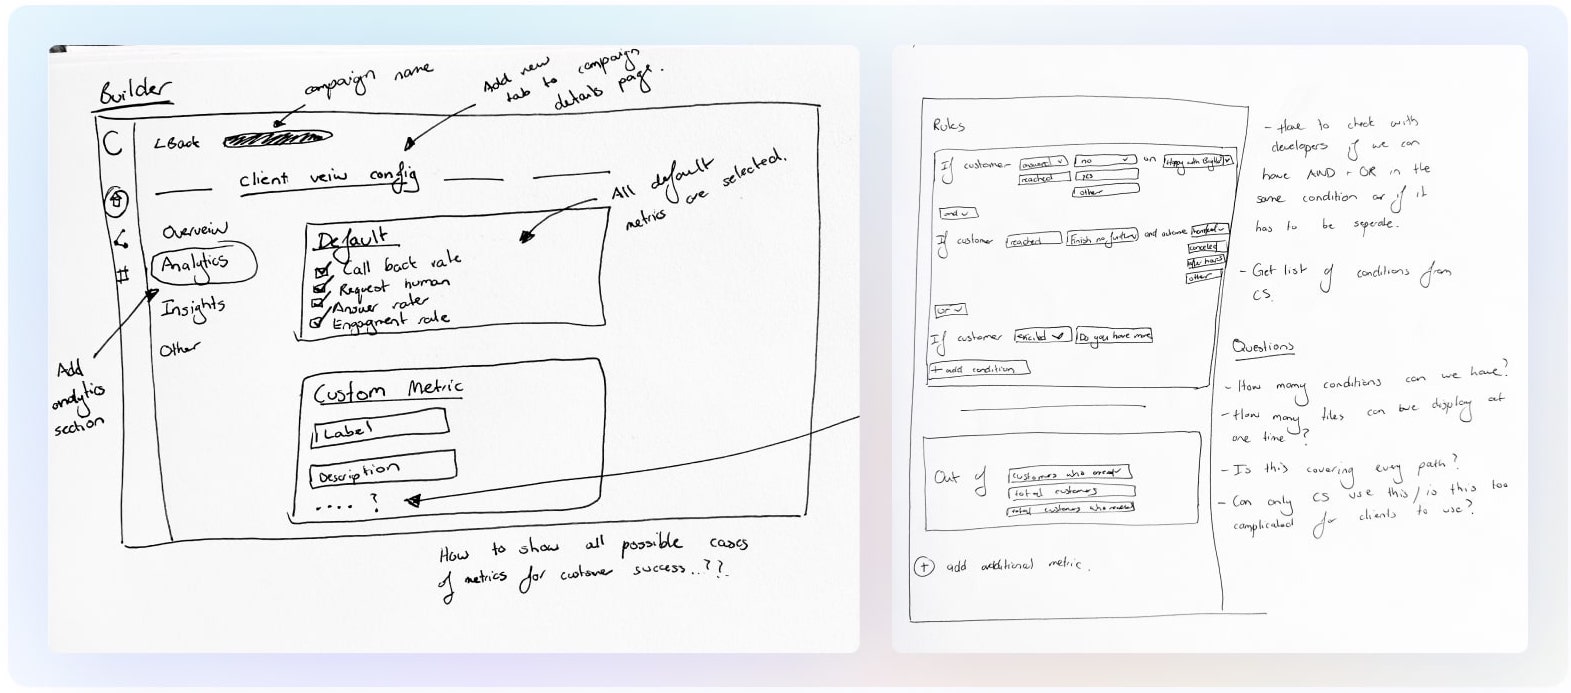 Builder
campaign name
Add new
tab to campaign
details page.
C
< Back
client veiw config
All default
metrics are selected.
Overveiw
Analytics
Insights
Other
#
Default
Call back rate
Request human
Answer rate
Engagment rate
Add
analytics
section
Custom Metric
Label
Description
.... ?
How to show all possible cases
of metrics for customer success..??
Rules
If customer answered no on
reached yes
other
and
If customer reached Finish no further and outcome
canceled
other
or
If customer excited Do you have more
+ add condition
Out of
customers who
total customers
total customers who
+ add additional metric.
- Have to check with
developers if we can
have AND + OR in the
same condition or if it
has to be seperate.
- Get list of conditions from
CS.
Questions
- How many conditions can we have?
- How many tiles can we display at
one time?
- Is this covering every path?
- Can only CS use this / is this too
complicated for clients to use?